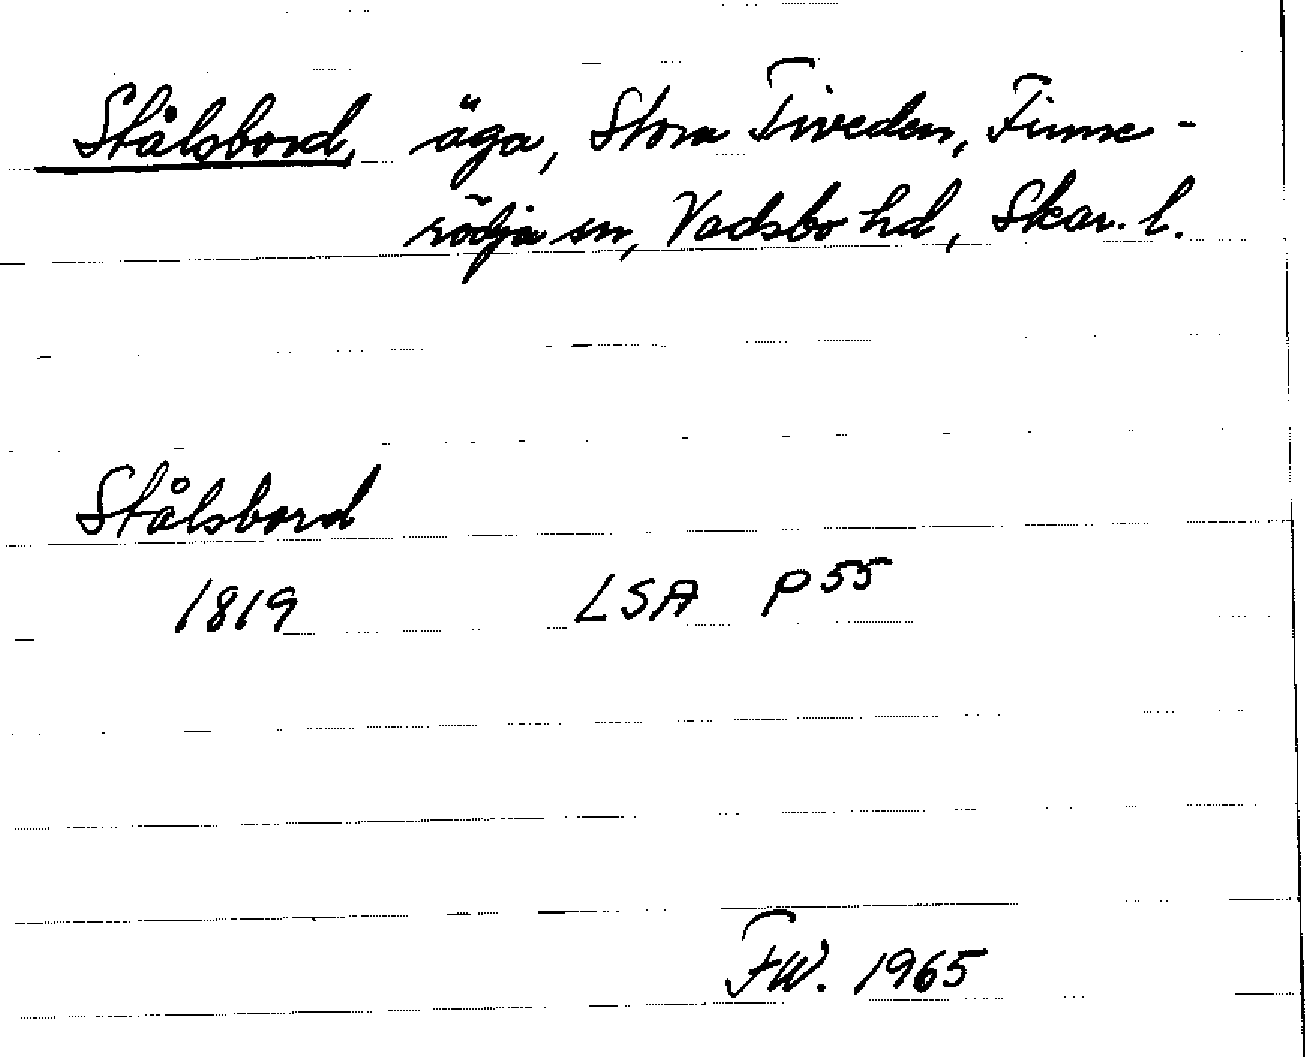 Stålsbord, äga, Stora Tiveden, Finne-
rödja sn, Vadsbo hd, Skar. l.
Stålsbord
1819 LSA P 55
FW. 1965